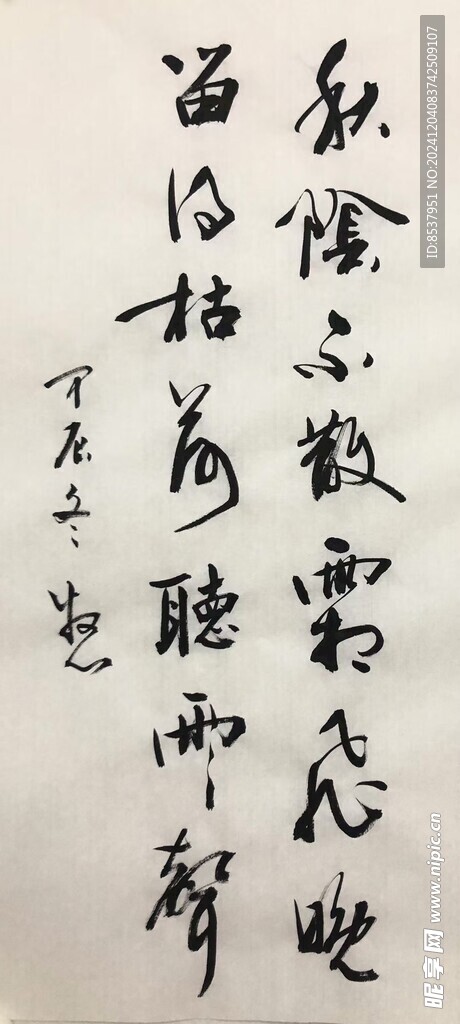 秋陰不散霜飛晚
留得枯荷聽雨聲
甲辰冬
ID:8537951 NO:20241204083742509107
昵享网 www.nipic.cn